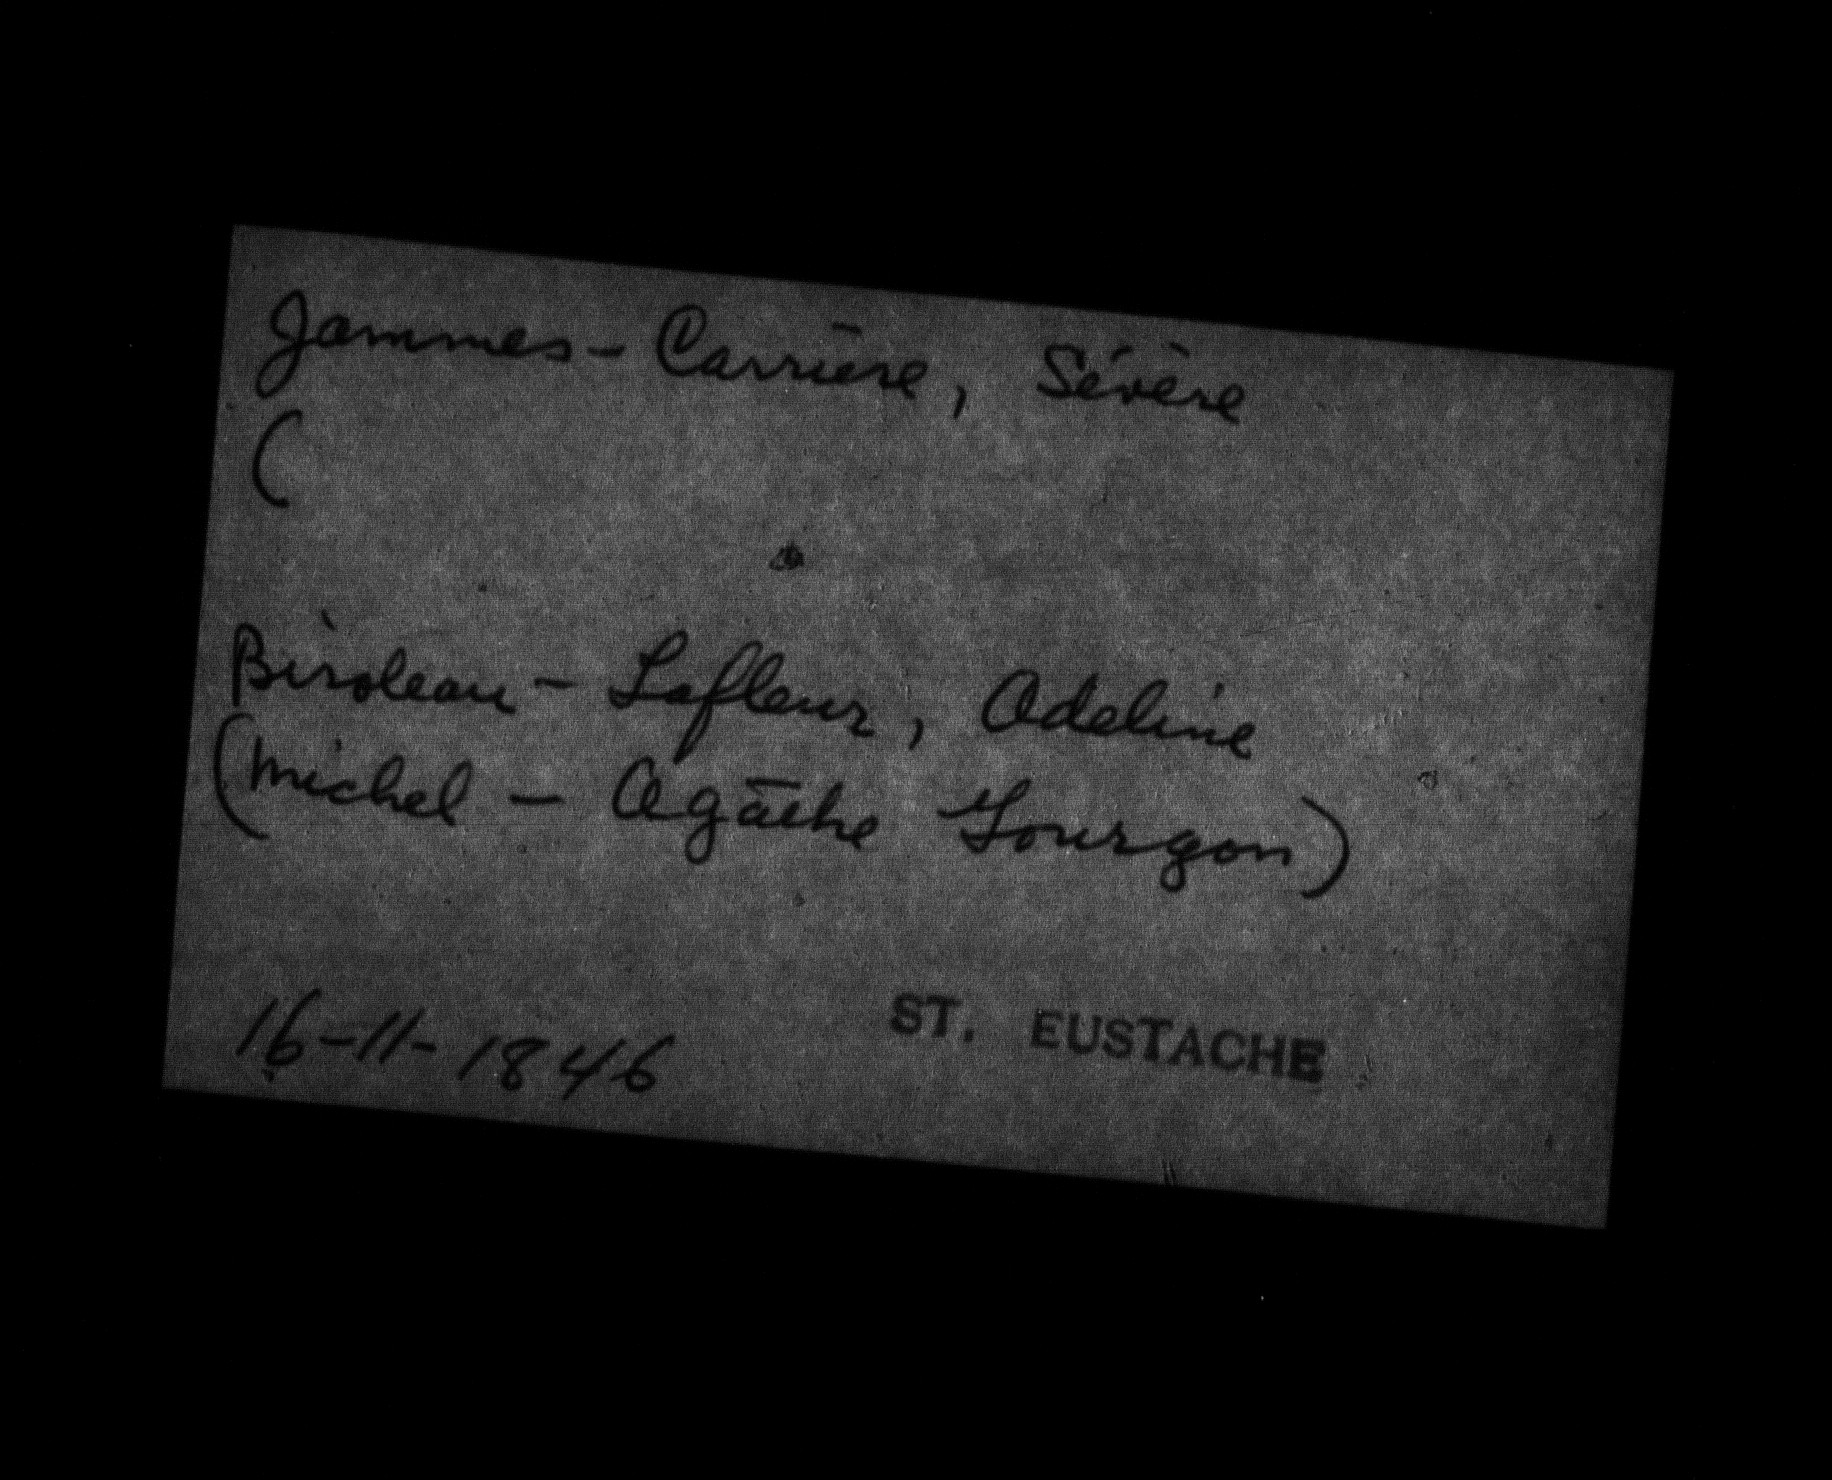 Jammes - Carrière, Sévère
(
Biroleau - Lafleur, Adeline
(Michel - Agathe Gourgon)
16-11-1846 ST. EUSTACHE